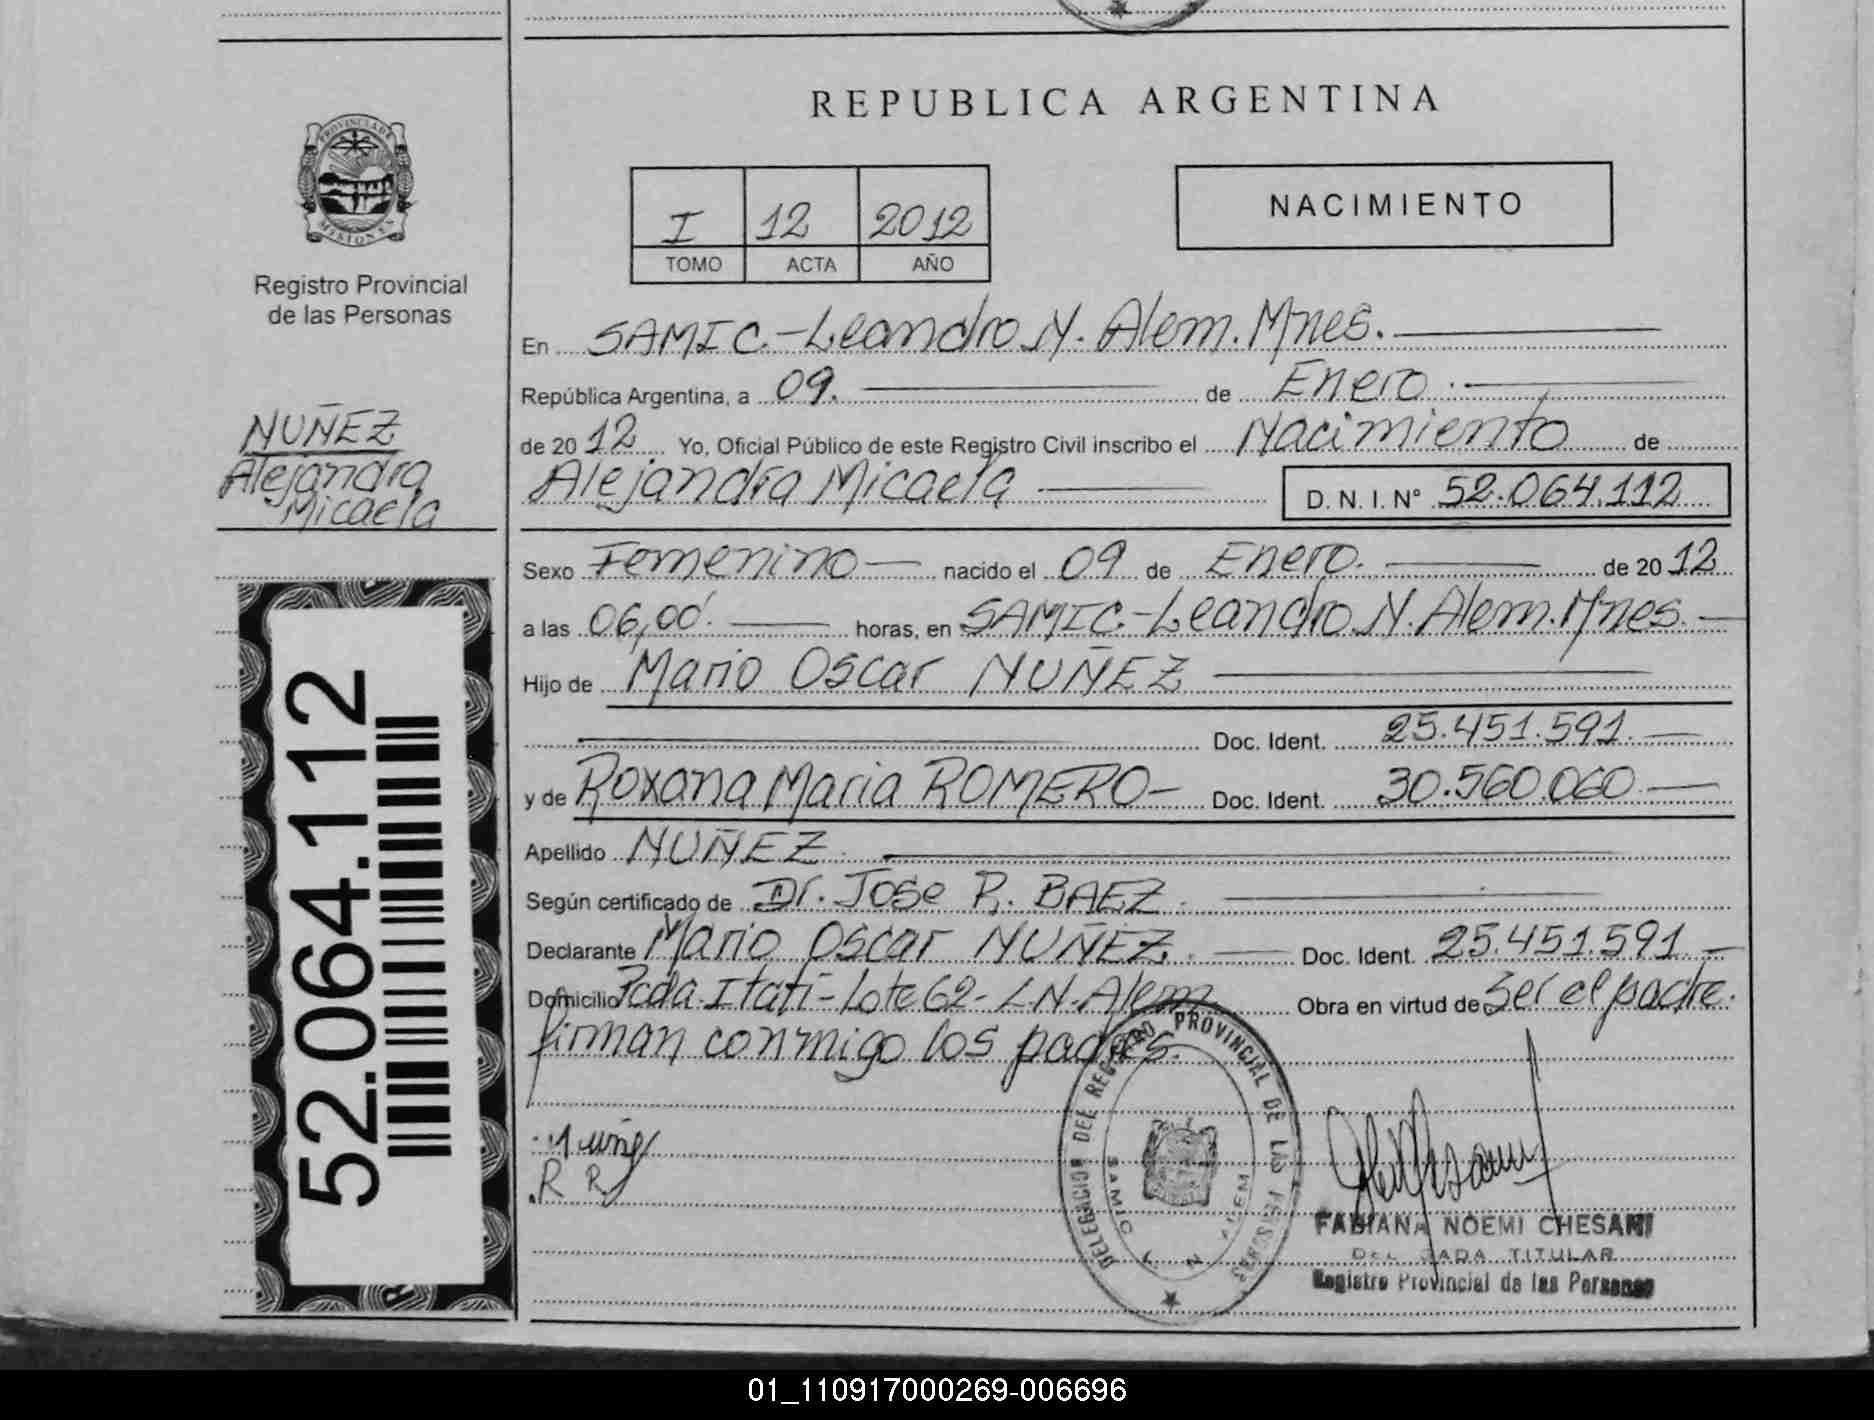 REPUBLICA ARGENTINA
PROVINCIA DE
MISIONES
Registro Provincial
de las Personas
I 12 2012
TOMO ACTA AÑO
NACIMIENTO
NUÑEZ
Alejandra
Micaela
En SAMIC.-Leandro N. Alem. Mnes.
República Argentina, a 09. de Enero.
de 20 12 Yo, Oficial Público de este Registro Civil inscribo el Nacimiento de
Alejandra Micaela D. N. I. N° 52.064.112
Sexo Femenino nacido el 09 de Enero. de 20 12
a las 06,00. horas, en SAMIC.-Leandro N. Alem. Mnes.
Hijo de Mario Oscar NUÑEZ
Doc. Ident. 25.451.591.
y de Roxana Maria ROMERO- Doc. Ident. 30.560.060
Apellido NUÑEZ
Según certificado de Dr. Jose R. BAEZ.
Declarante Mario Oscar NUÑEZ. Doc. Ident. 25.451.591
Domicilio Pcda. Itatí-Lote 62-L.N. Alem. Obra en virtud de Ser el padre.
firman conmigo los padres.
52.064.112
R R
DELEGACION DEL REGISTRO PROVINCIAL DE LAS PERSONAS
SAMIC L N ALEM
FABIANA NOEMI CHESANI
DELEGADA TITULAR
Registro Provincial de las Personas
01_110917000269-006696